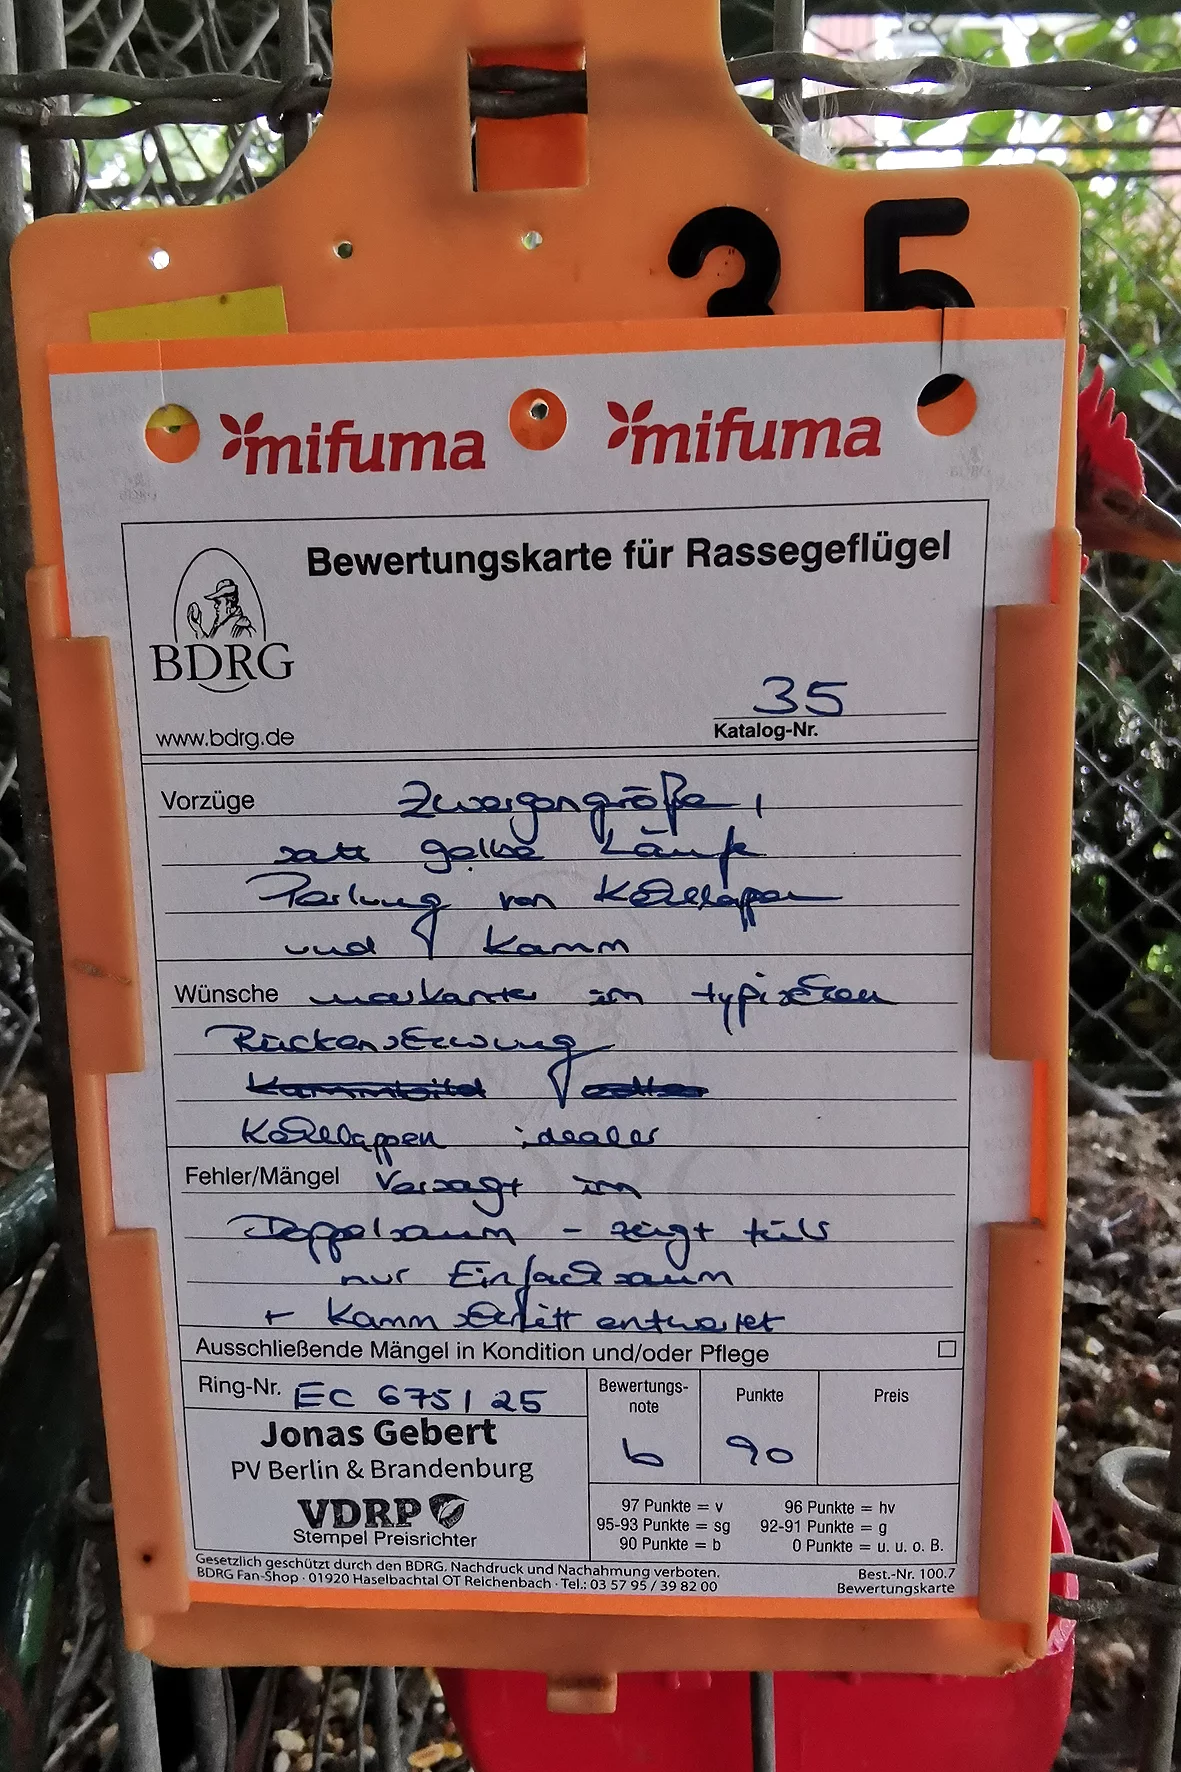 35
mifuma mifuma
Bewertungskarte für Rassegeflügel
BDRG
www.bdrg.de
35
Katalog-Nr.
Vorzüge Zwergengröße,
satt gelbe Läufe
Perlung von Kehllappen
und Kamm
Wünsche markanter im typischen
Rückenschwung
Kammbild
Kehllappen idealer
Fehler/Mängel Versagt im
Doppelsaum - zeigt teils
nur Einfachsaum
+ Kammschnitt entwertet
Ausschließende Mängel in Kondition und/oder Pflege
Ring-Nr. EC 675 / 25
Bewertungs-
note
Punkte
Preis
Jonas Gebert
PV Berlin & Brandenburg
b
90
VDRP
Stempel Preisrichter
97 Punkte = v 96 Punkte = hv
95-93 Punkte = sg 92-91 Punkte = g
90 Punkte = b 0 Punkte = u. u. o. B.
Gesetzlich geschützt durch den BDRG. Nachdruck und Nachahmung verboten.
BDRG Fan-Shop · 01920 Haselbachtal OT Reichenbach · Tel.: 03 57 95 / 39 82 00
Best.-Nr. 100.7
Bewertungskarte